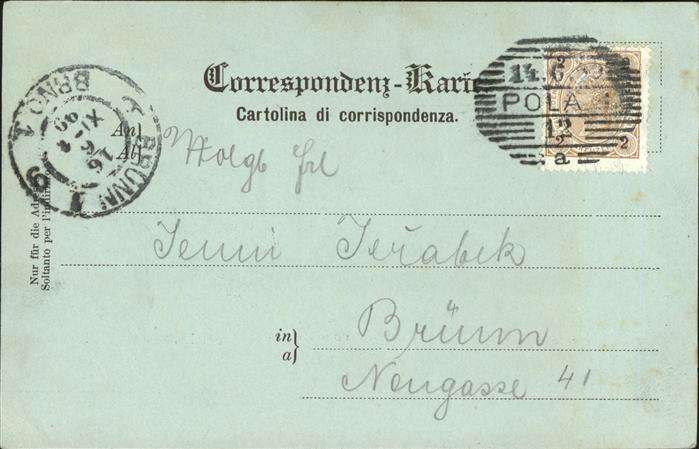 Correspondenz-Karte
Cartolina di corrispondenza.
14.6
POLA 1
12
a
2
BRÜNN 1
BRNO 1
16
6
XI
99
9
An
Wolgb Frl
Jenni Jeřabek
in
a
Brünn
Neugasse 41
Nur für die Adr
Soltanto per l'indiri